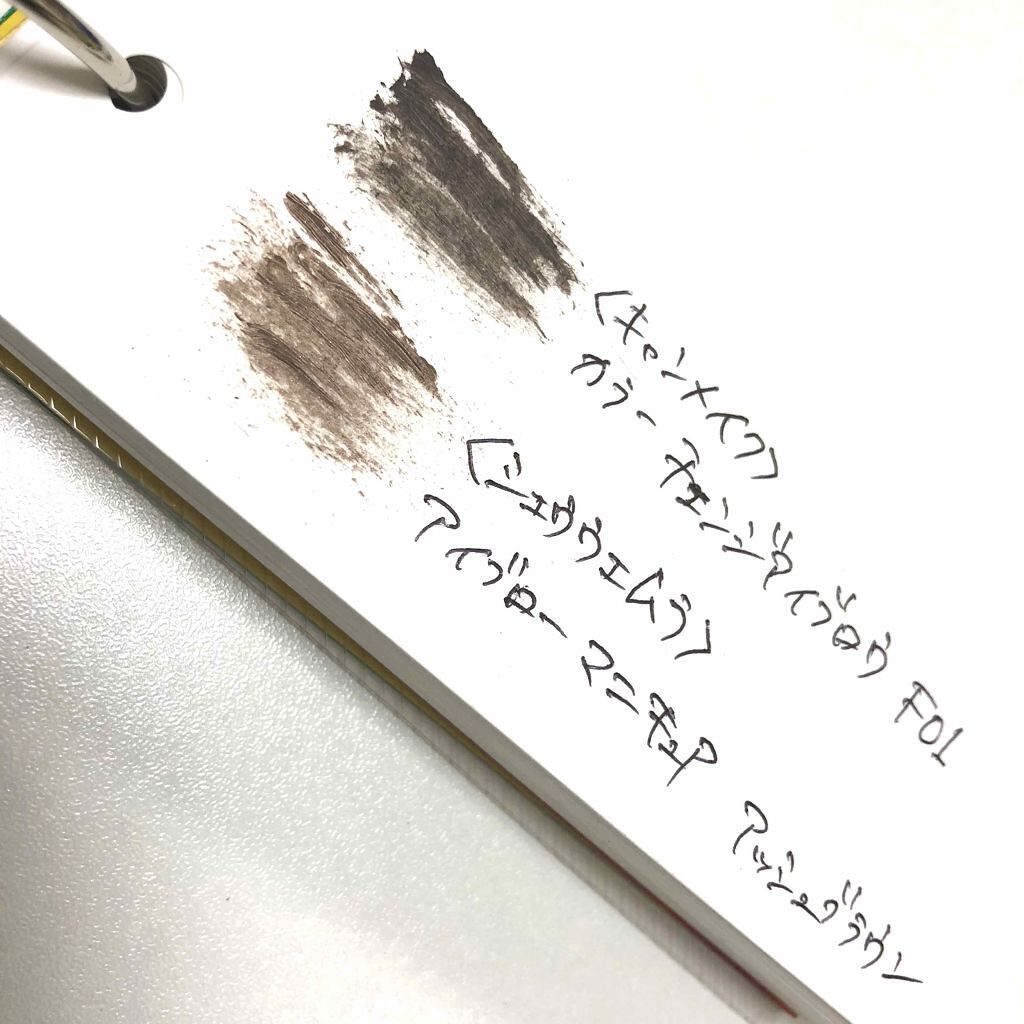 [キャンメイク]
カラーチェンジアイブロウ F01
[シュウウエムラ]
アイブロー マニキュア アッシュブラウン